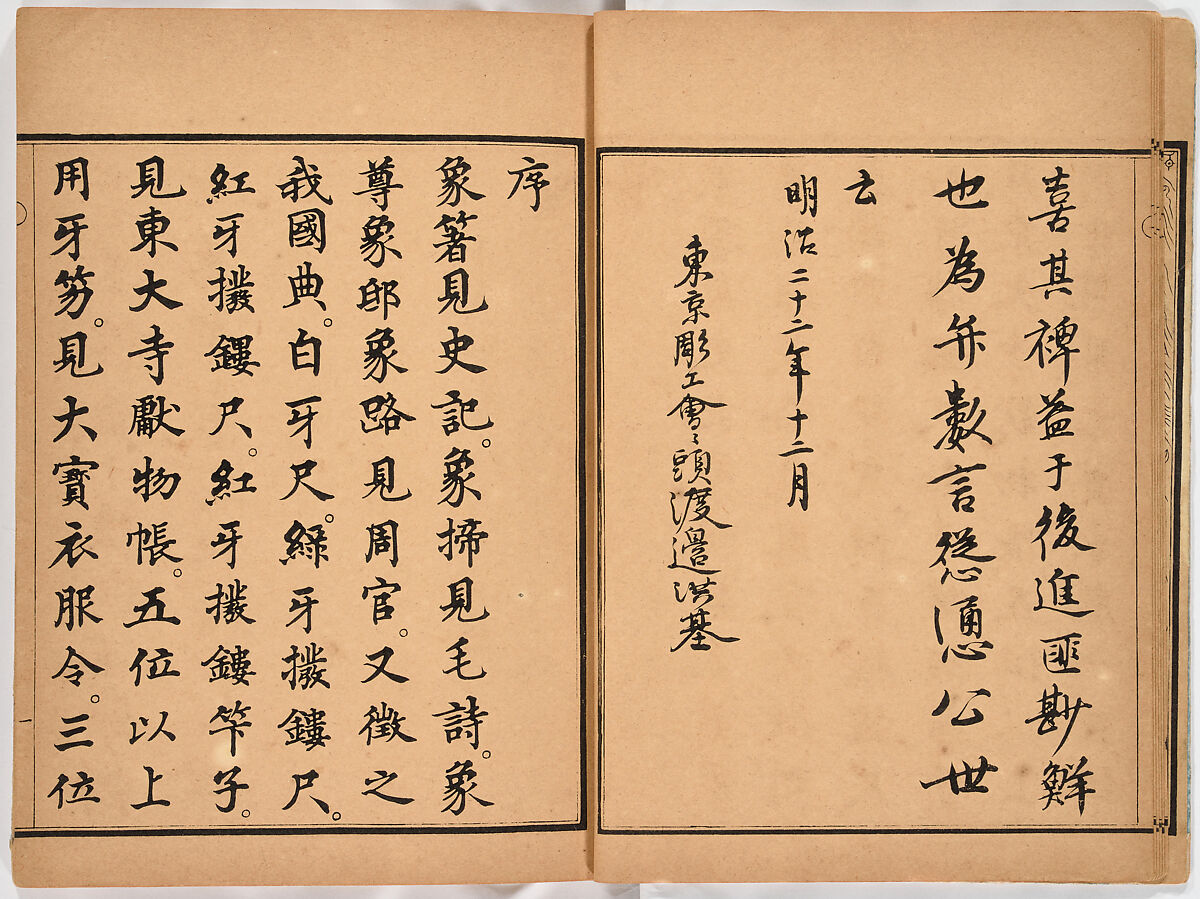 喜其裨益于後進匪尠鮮
也為弁數言慫慂公世
云
明治二十二年十二月
東京彫工會々頭渡邊洪基
序
象箸見史記。象揥見毛詩。象
尊象邸象路見周官。又徵之
我國典。白牙尺。綠牙撥鏤尺。
紅牙撥鏤尺。紅牙撥鏤竿子。
見東大寺獻物帳。五位以上
用牙笏。見大寶衣服令。三位
一